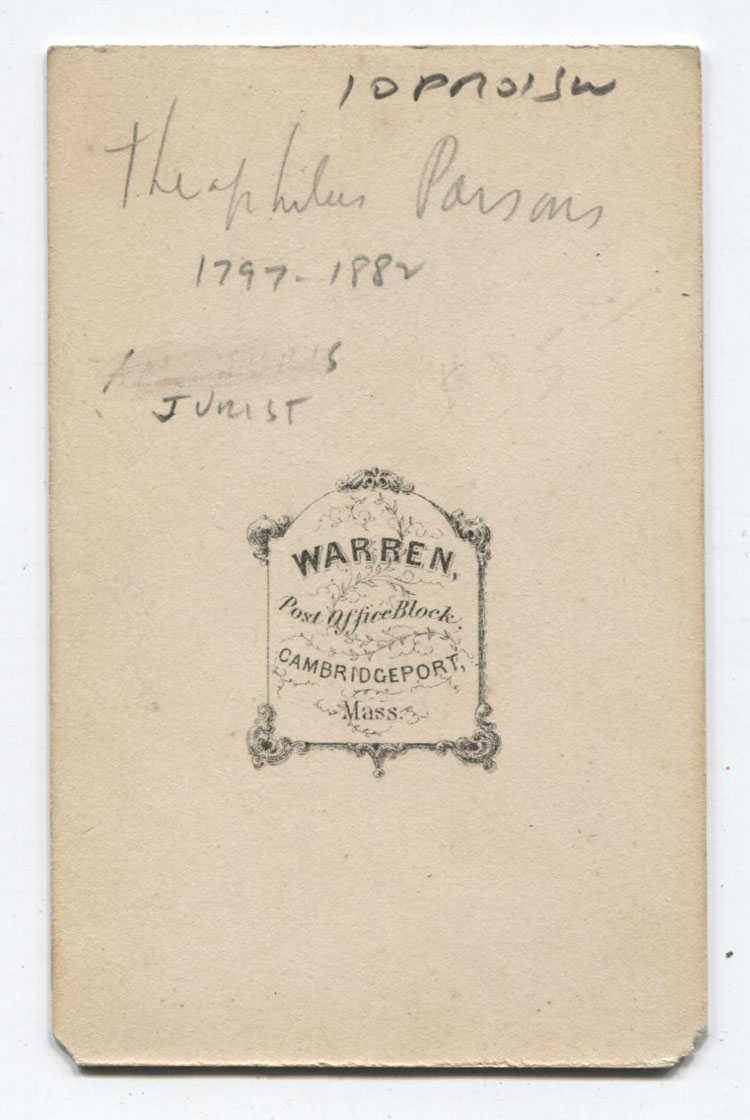 Theophilus Parsons
1797-1882
JURIST
WARREN,
Post Office Block.
CAMBRIDGEPORT,
Mass.